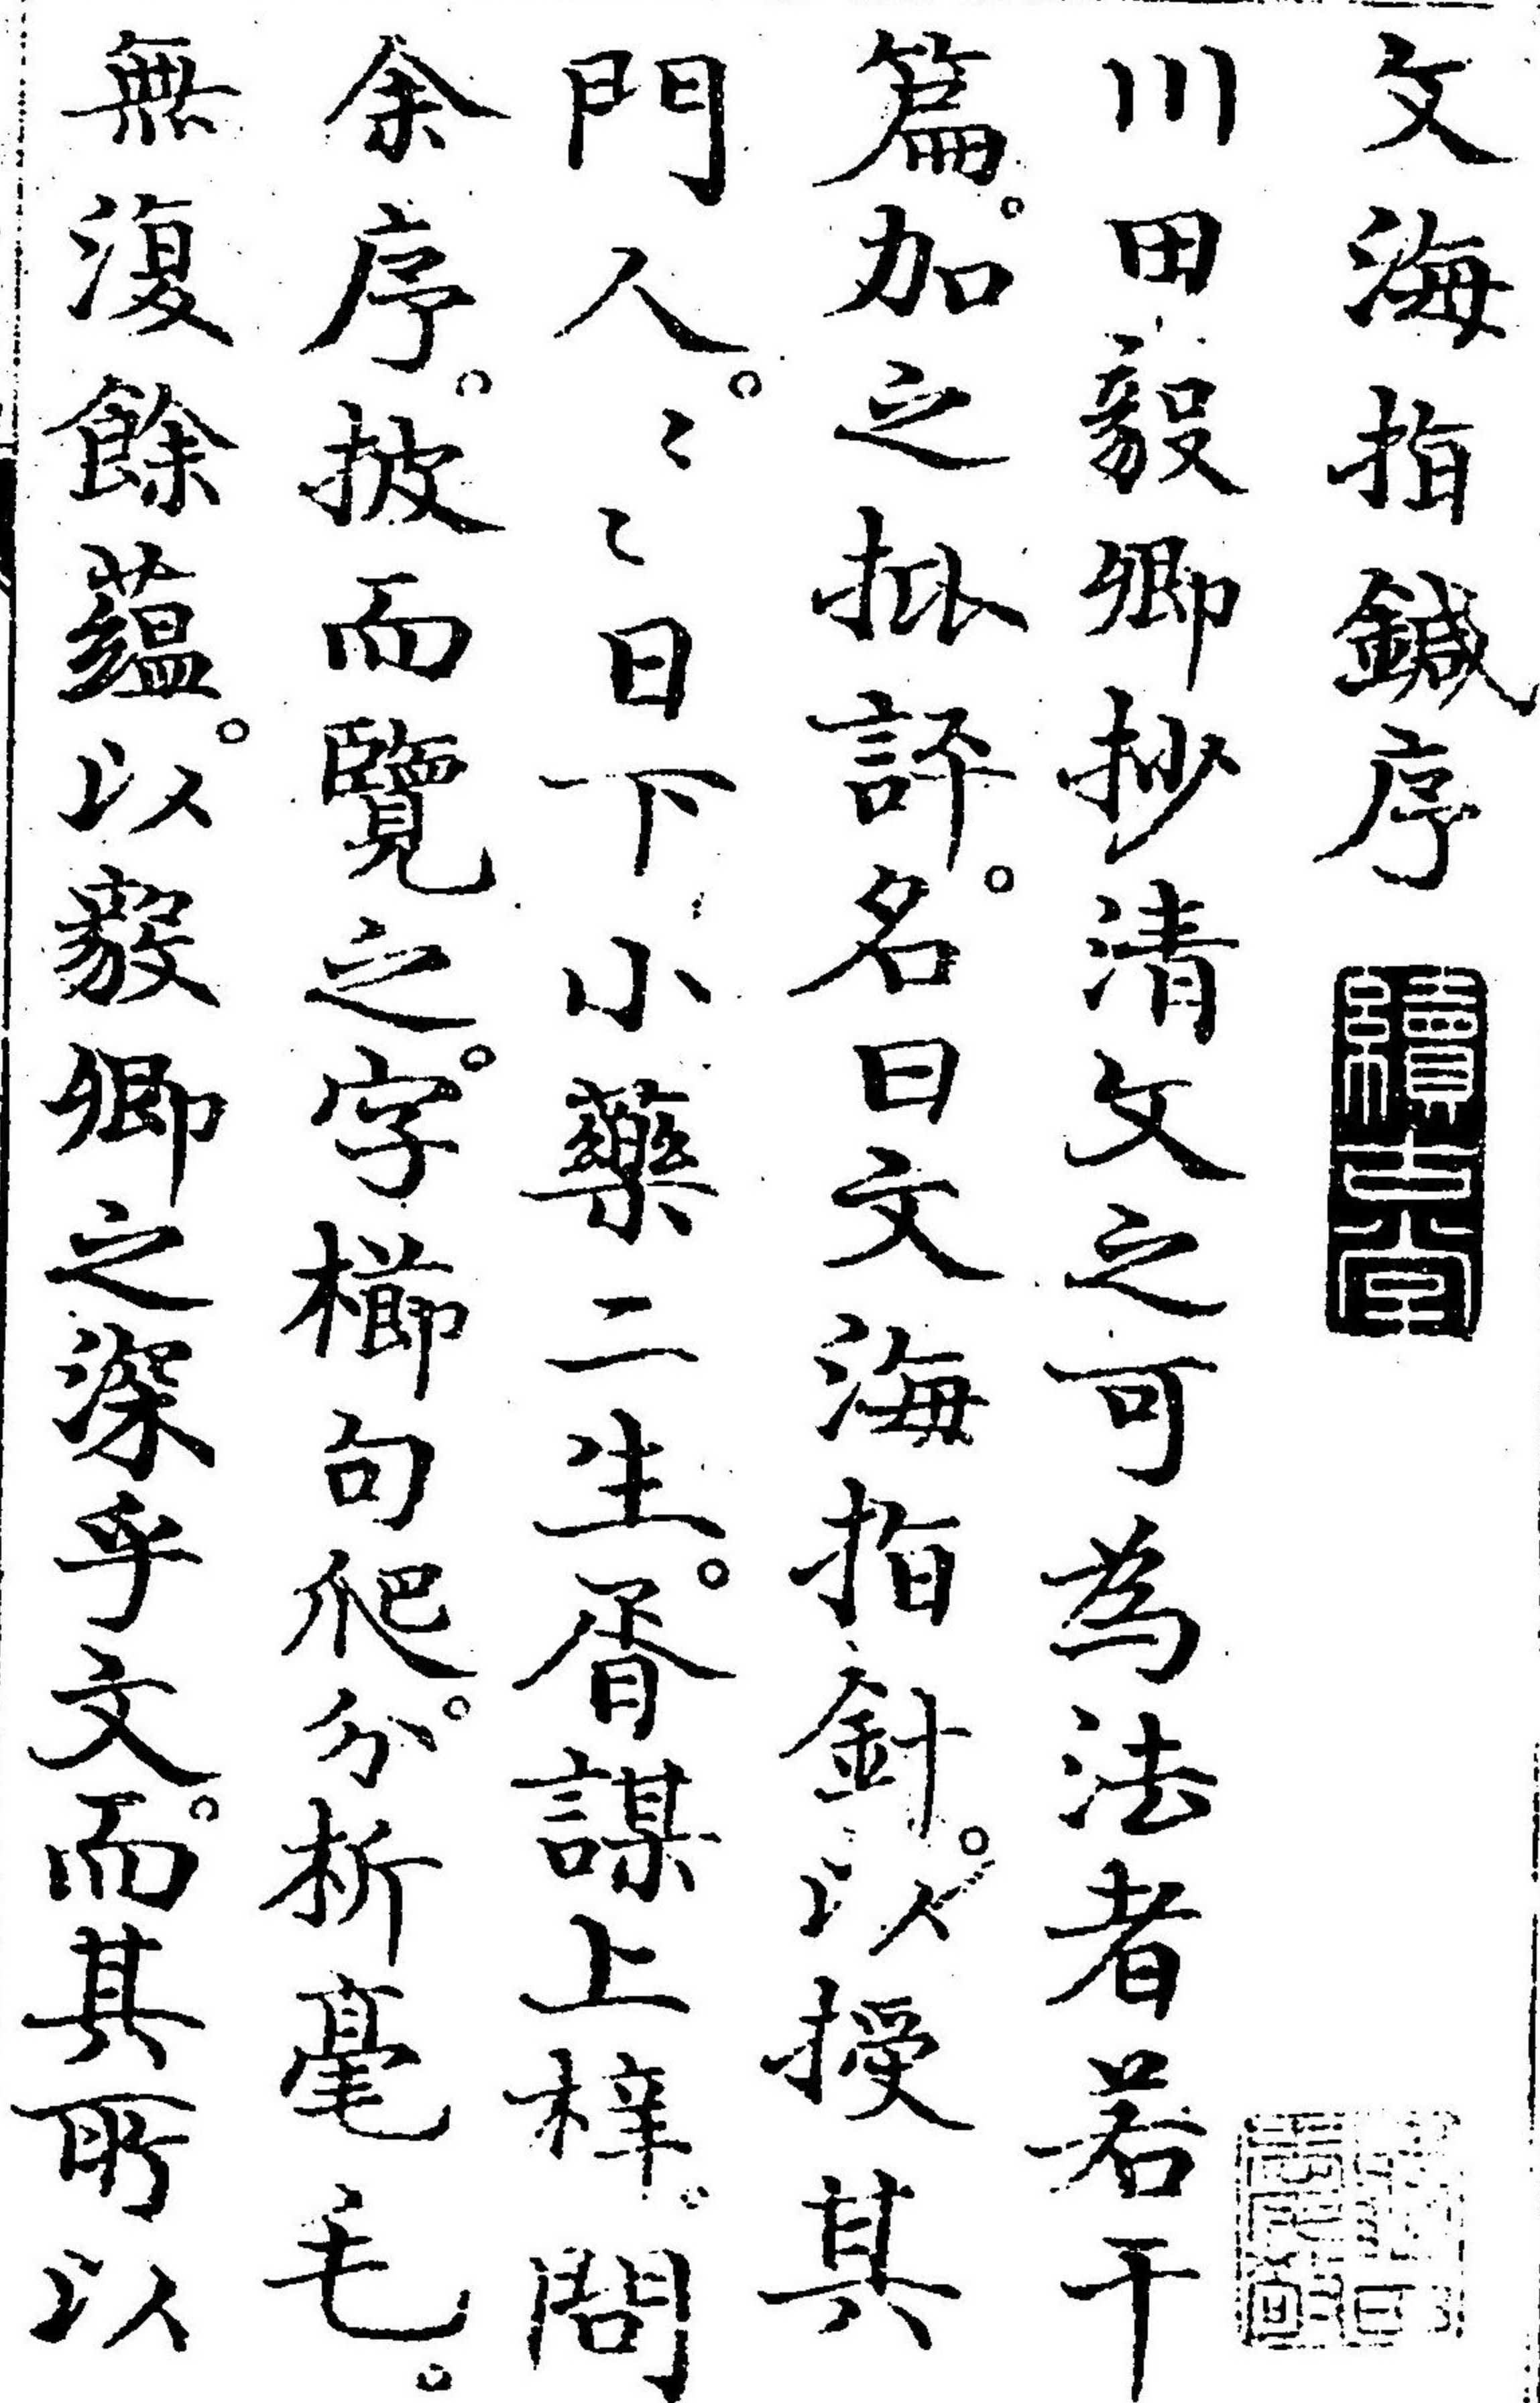 文海指鍼序
川田毅卿抄清文之可為法者若干
篇。加之批評。名曰文海指針。以授其
門人。〻〻日下小藥二生。胥謀上梓。問
余序。披而覽之。字櫛句爬。分析毫毛。
無復餘蘊。以毅卿之深乎文。而其所以